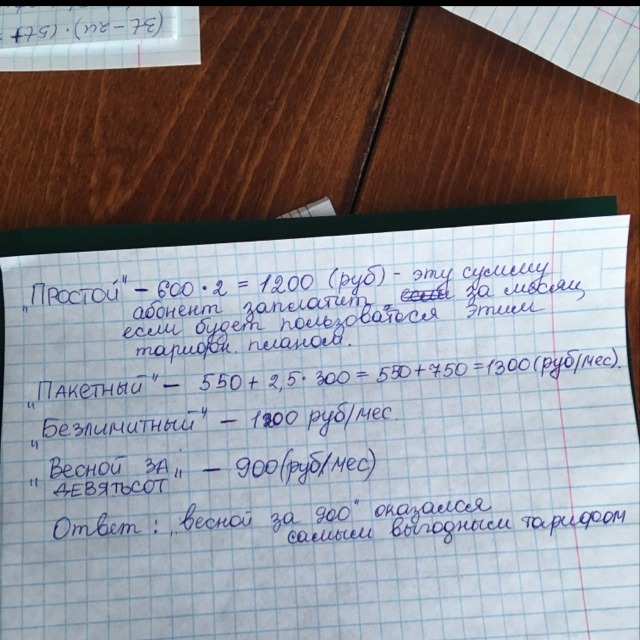 „Простой" – 600·2 = 1200 (руб) - эту сумму
абонент заплатит за месяц,
если будет пользоваться этим
тарифн. планом.
„Пакетный" – 550 + 2,5·300 = 550 + 750 = 1300 (руб/мес).
„Безлимитный" – 1200 руб/мес.
„Весной за
девятьсот" – 900 (руб/мес)
Ответ: „весной за 900" оказался
самым выгодным тарифом